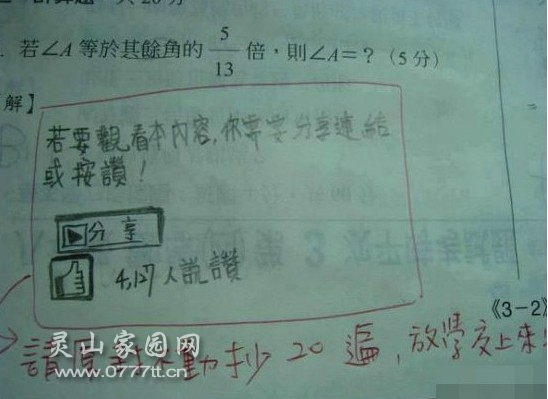 若∠A 等於其餘角的 5/13 倍，則∠A=？（5分）
解】
若要觀看本內容，你需要分享連結
或按讚！
分享
4,127人說讚
《3-2》
動抄20遍，放學交上來
灵山家园网
www.0777tt.cn